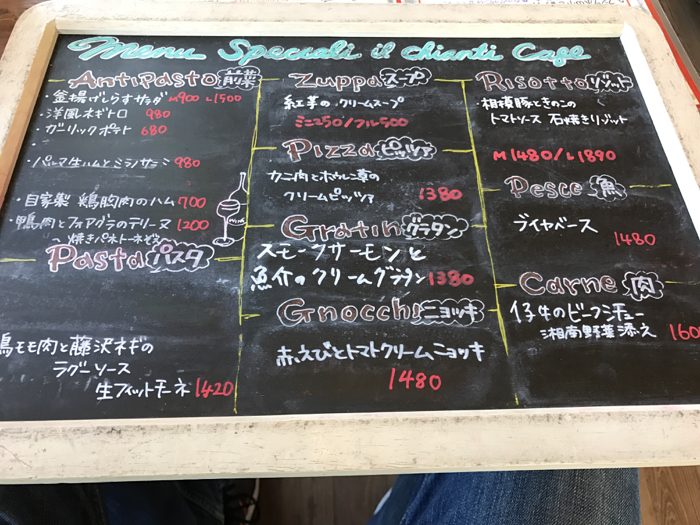 Menu Speciali il chianti Cafe
Antipasto 前菜
・釜揚げしらすサラダ M900 L1500
・洋風ネギトロ 980
・ガーリックポテト 680
・
・パルマ生ハムとミラノサラミ 980
・自家製 鶏胸肉のハム 700
・鴨肉とフォアグラのテリーヌ 1200
焼きパネトーネぞえ
Pasta パスタ
鴨モモ肉と藤沢ネギの
ラグーソース
生フィットチーネ 1420
Zuppa スープ
紅芋のクリームスープ
ミニ250/フル500
Pizza ピッツァ
カニ肉とホウレン草の
クリームピッツァ 1380
Gratin グラタン
スモークサーモンと
魚介のクリームグラタン 1380
Gnocchi ニョッキ
赤えびとトマトクリームニョッキ
1480
Risotto リゾット
相模豚ときのこの
トマトソース 石焼きリゾット
M1480/L1890
Pesce 魚
ブイヤベース
1480
Carne 肉
仔牛のビーフシチュー
湘南野菜添え 160